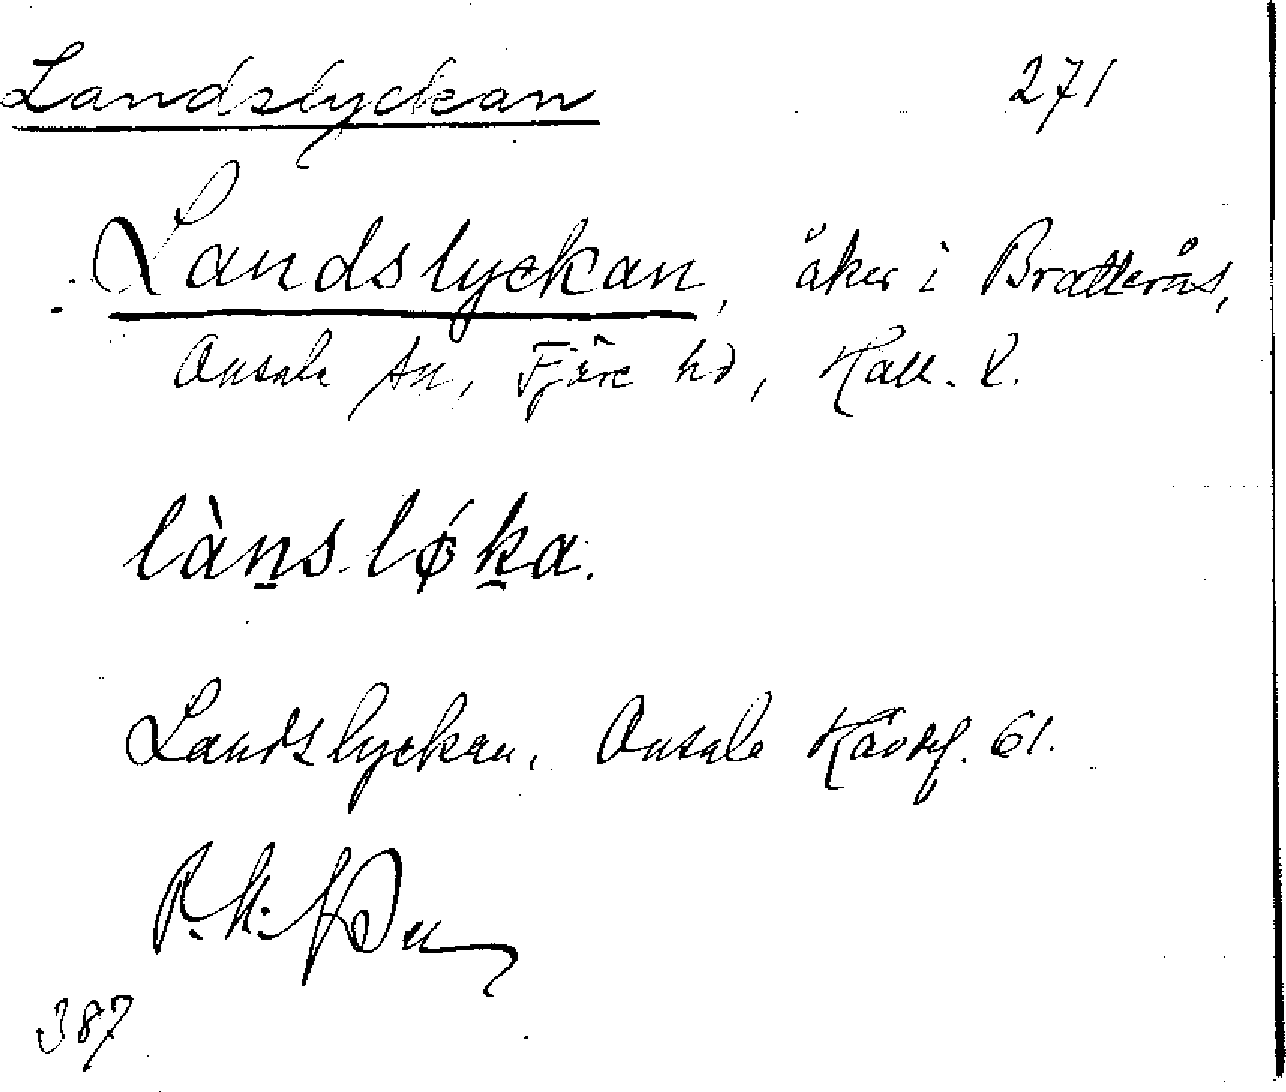 Landslyckan 271
Landslyckan, åker i Bratterås,
Onsala sn, Fjäre hd, Hall. l.
làn̲s løk̲a.
Landslyckan, Onsala 61.
387